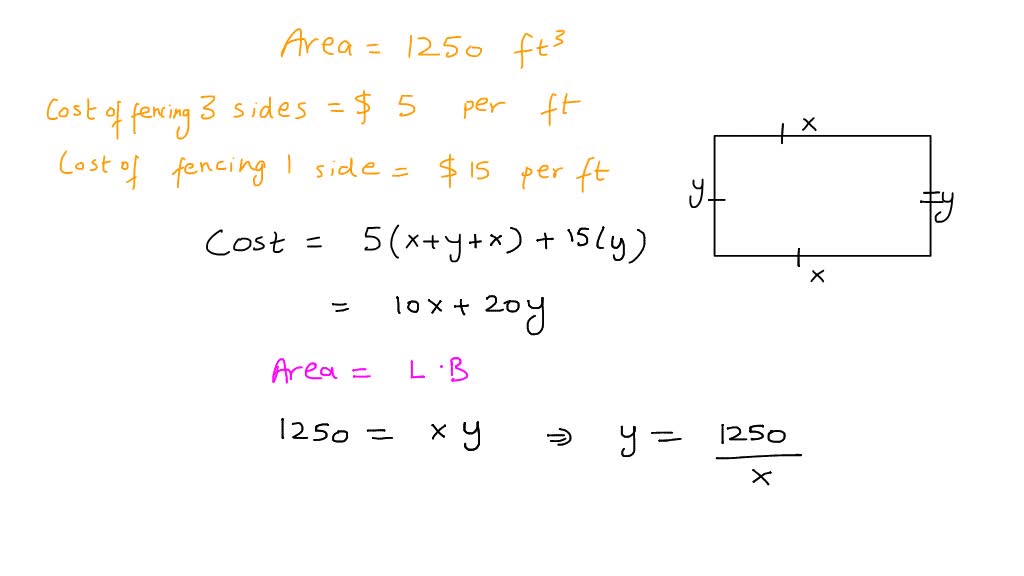 Area = 1250 ft³
Cost of fencing 3 sides = $ 5 per ft
Cost of fencing 1 side = $ 15 per ft
Cost = 5(x+y+x) + 15(y)
= 10x + 20y
Area = L·B
1250 = xy ⇒ y = 1250/x
x
y
y
x